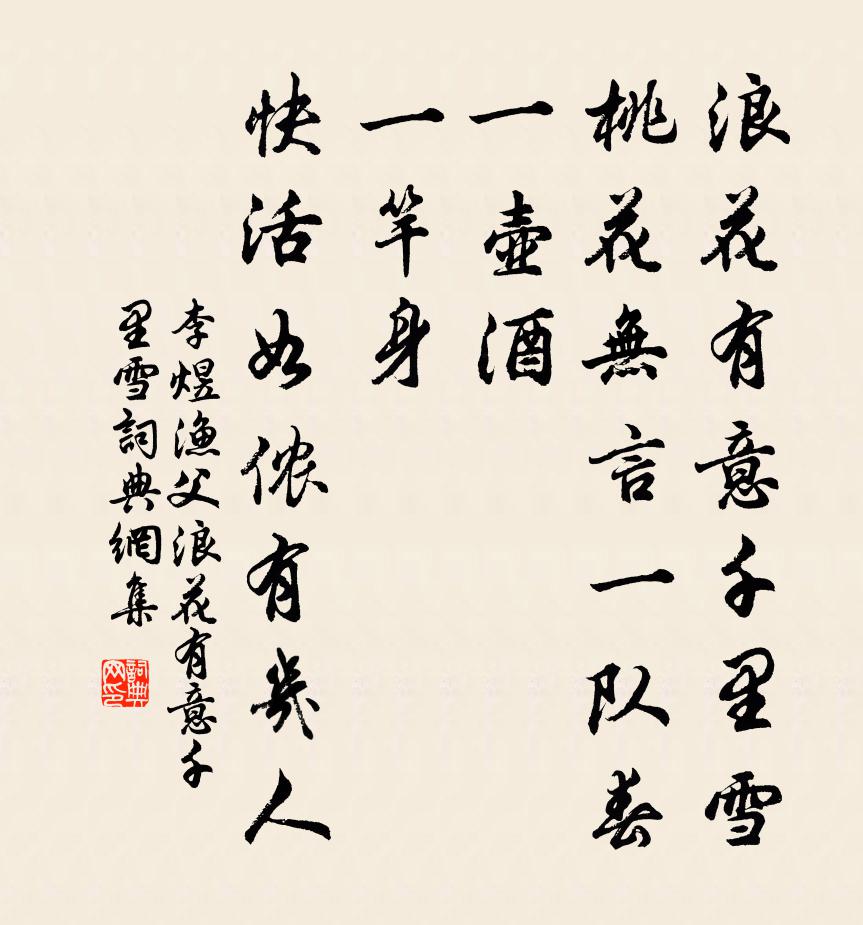 浪花有意千里雪
桃花無言一队春
一壺酒
一竿身
快活如侬有幾人
李煜漁父浪花有意千
里雪詞典網集
詞典
网印